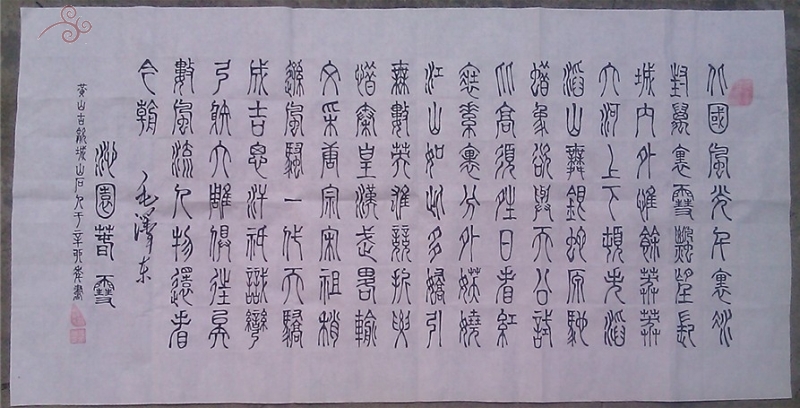 北國風光千里冰
封萬里雪飄望長
城內外惟餘莽莽
大河上下頓失滔
滔山舞銀蛇原馳
蠟象欲與天公試
比高須晴日看紅
裝素裹分外妖嬈
江山如此多嬌引
無數英雄競折腰
惜秦皇漢武略輸
文采唐宗宋祖稍
遜風騷一代天驕
成吉思汗祇識彎
弓射大雕俱往矣
數風流人物還看
今朝 毛澤東
沁園春雪
黃山吉龍城山石人于辛